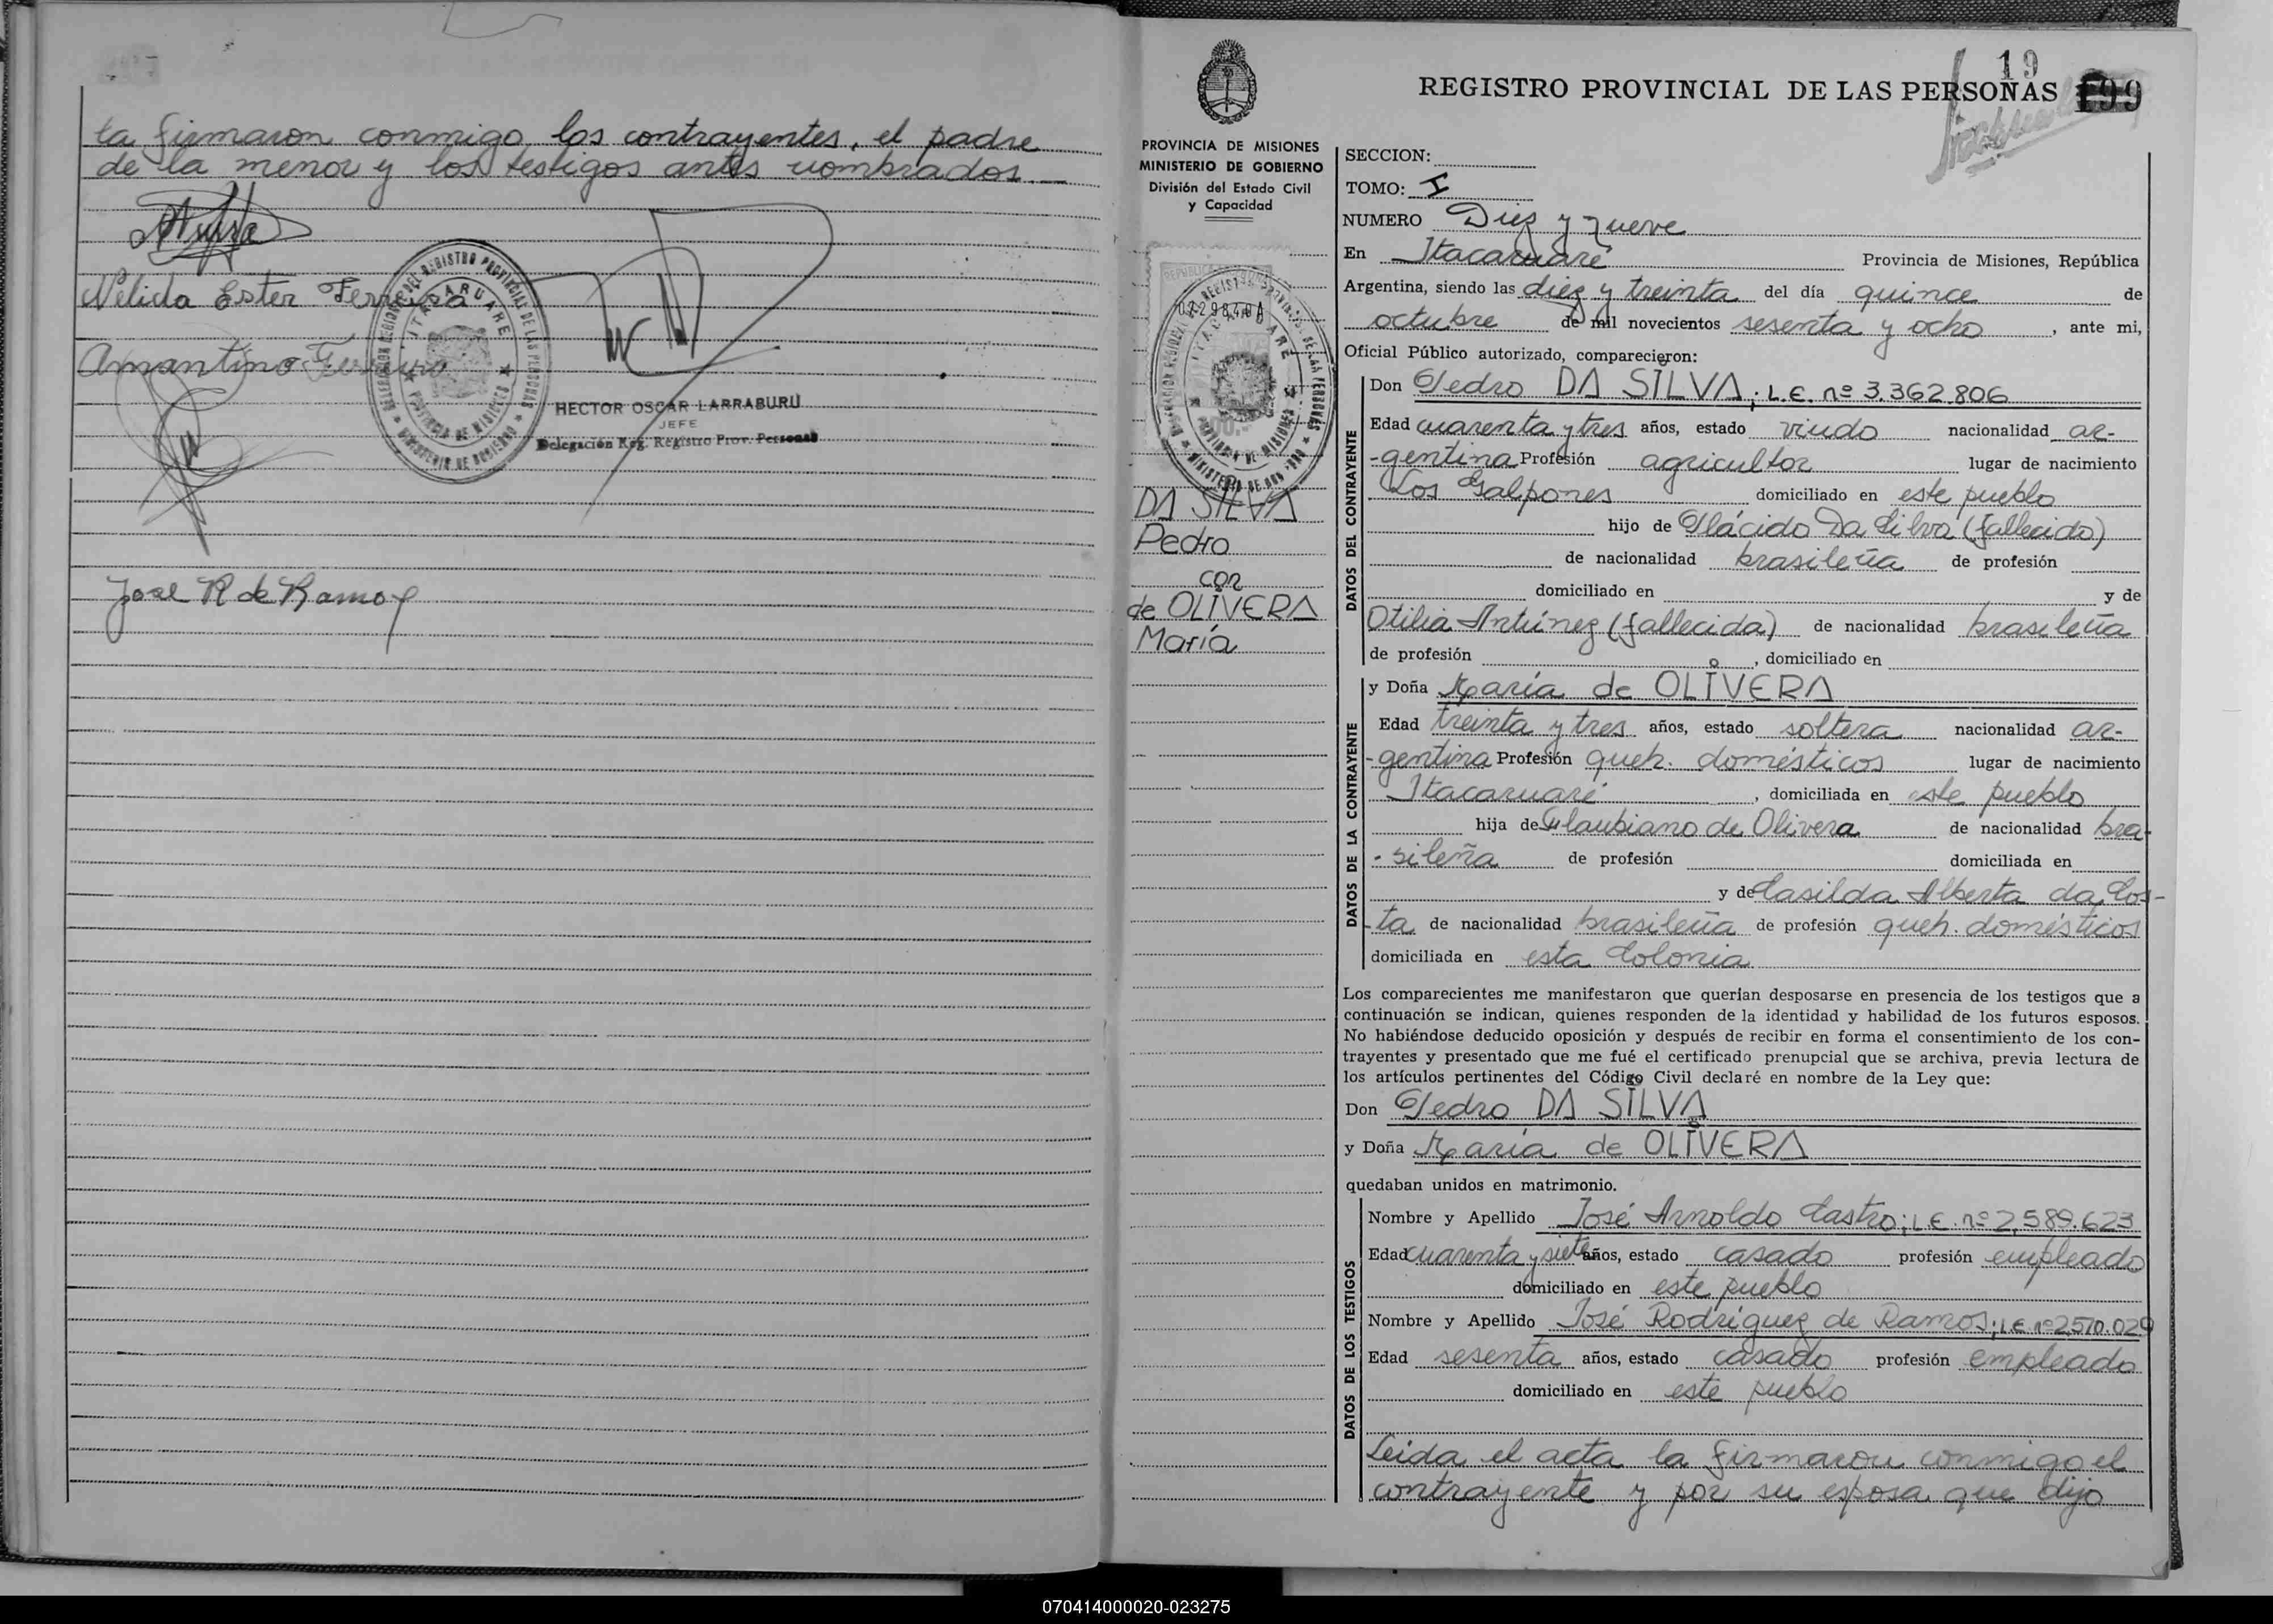 la firmaron conmigo los contrayentes, el padre
de la menor y los testigos antes nombrados.—
Nélida Ester Ferreyra
Amantino Ferreyra
REGISTRO PROVINCIAL DE LAS PERSONAS
ITACARUARE
PROVINCIA DE MISIONES
MINISTERIO DE GOBIERNO
HECTOR OSCAR LARRABURU
JEFE
Delegación Reg. Registro Prov. Personas
José R de Ramos
PROVINCIA DE MISIONES
MINISTERIO DE GOBIERNO
División del Estado Civil
y Capacidad
DA SILVA
Pedro
con
de OLIVERA
María
19
REGISTRO PROVINCIAL DE LAS PERSONAS 99
SECCION:
TOMO: I
NUMERO Diez y nueve
En Itacaruaré Provincia de Misiones, República
Argentina, siendo las diez y treinta del día quince de
octubre de mil novecientos sesenta y ocho, ante mi,
Oficial Público autorizado, comparecieron:
DATOS DEL CONTRAYENTE
Don Pedro DA SILVA; L.E. nº 3.362.806
Edad cuarenta y tres años, estado viudo nacionalidad ar-
-gentina Profesión agricultor lugar de nacimiento
Los Galpones domiciliado en este pueblo
hijo de Plácido Da Silva (fallecido)
de nacionalidad brasileña de profesión
domiciliado en y de
Otilia Antúnez (fallecida) de nacionalidad brasileña
de profesión , domiciliado en
DATOS DE LA CONTRAYENTE
y Doña María de OLIVERA
Edad treinta y tres años, estado soltera nacionalidad ar-
-gentina Profesión queh. domésticos lugar de nacimiento
Itacaruaré , domiciliada en este pueblo
hija de Claubiano de Olivera de nacionalidad bra-
-sileña de profesión domiciliada en
y de Casilda Alberta da Cos-
-ta de nacionalidad brasileña de profesión queh. domésticos
domiciliada en esta Colonia
Los comparecientes me manifestaron que querían desposarse en presencia de los testigos que a
continuación se indican, quienes responden de la identidad y habilidad de los futuros esposos.
No habiéndose deducido oposición y después de recibir en forma el consentimiento de los con-
trayentes y presentado que me fué el certificado prenupcial que se archiva, previa lectura de
los artículos pertinentes del Código Civil declaré en nombre de la Ley que:
Don Pedro DA SILVA
y Doña María de OLIVERA
quedaban unidos en matrimonio.
DATOS DE LOS TESTIGOS
Nombre y Apellido José Arnoldo Castro; L.E. nº 2.589.623
Edad cuarenta y siete años, estado casado profesión empleado
domiciliado en este pueblo
Nombre y Apellido José Rodríguez de Ramos; L.E. nº 2.510.029
Edad sesenta años, estado casado profesión empleado
domiciliado en este pueblo
Leida el acta la firmaron conmigo el
contrayente y por su esposa que dijo
070414000020-023275